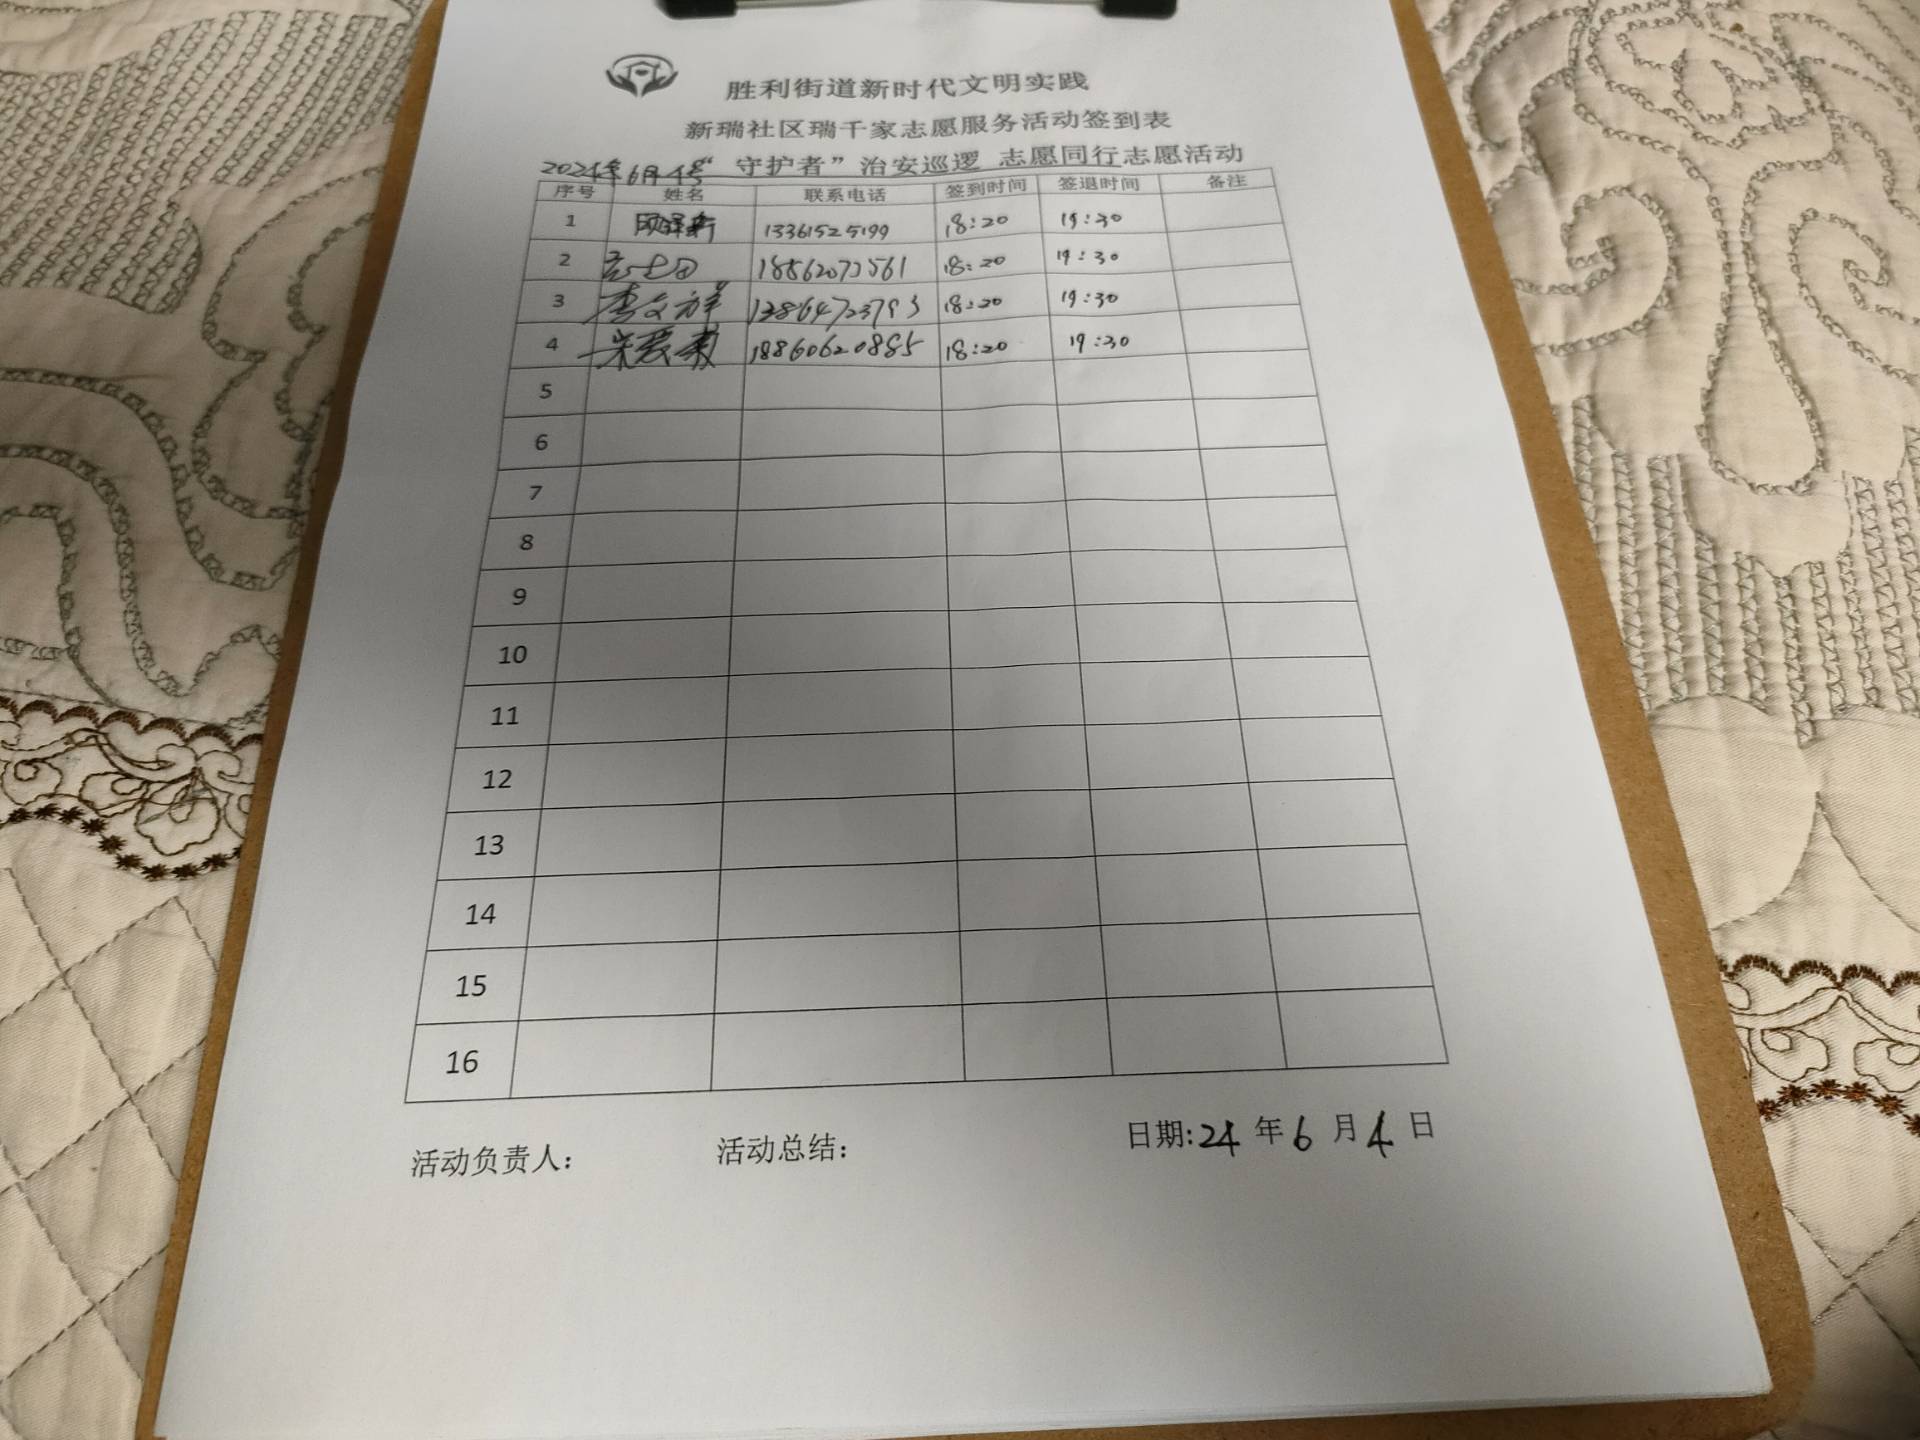 胜利街道新时代文明实践
新瑞社区瑞千家志愿服务活动签到表
2024年6月4号“守护者”治安巡逻 志愿同行志愿活动
序号 姓名 联系电话 签到时间 签退时间 备注
1 13361525199 18:20 19:30
2 18562073561 18:20 19:30
3 李文祥 13864723793 18:20 19:30
4 宋爱菊 18860620885 18:20 19:30
5
6
7
8
9
10
11
12
13
14
15
16
活动负责人： 活动总结： 日期:24 年 6 月 4 日